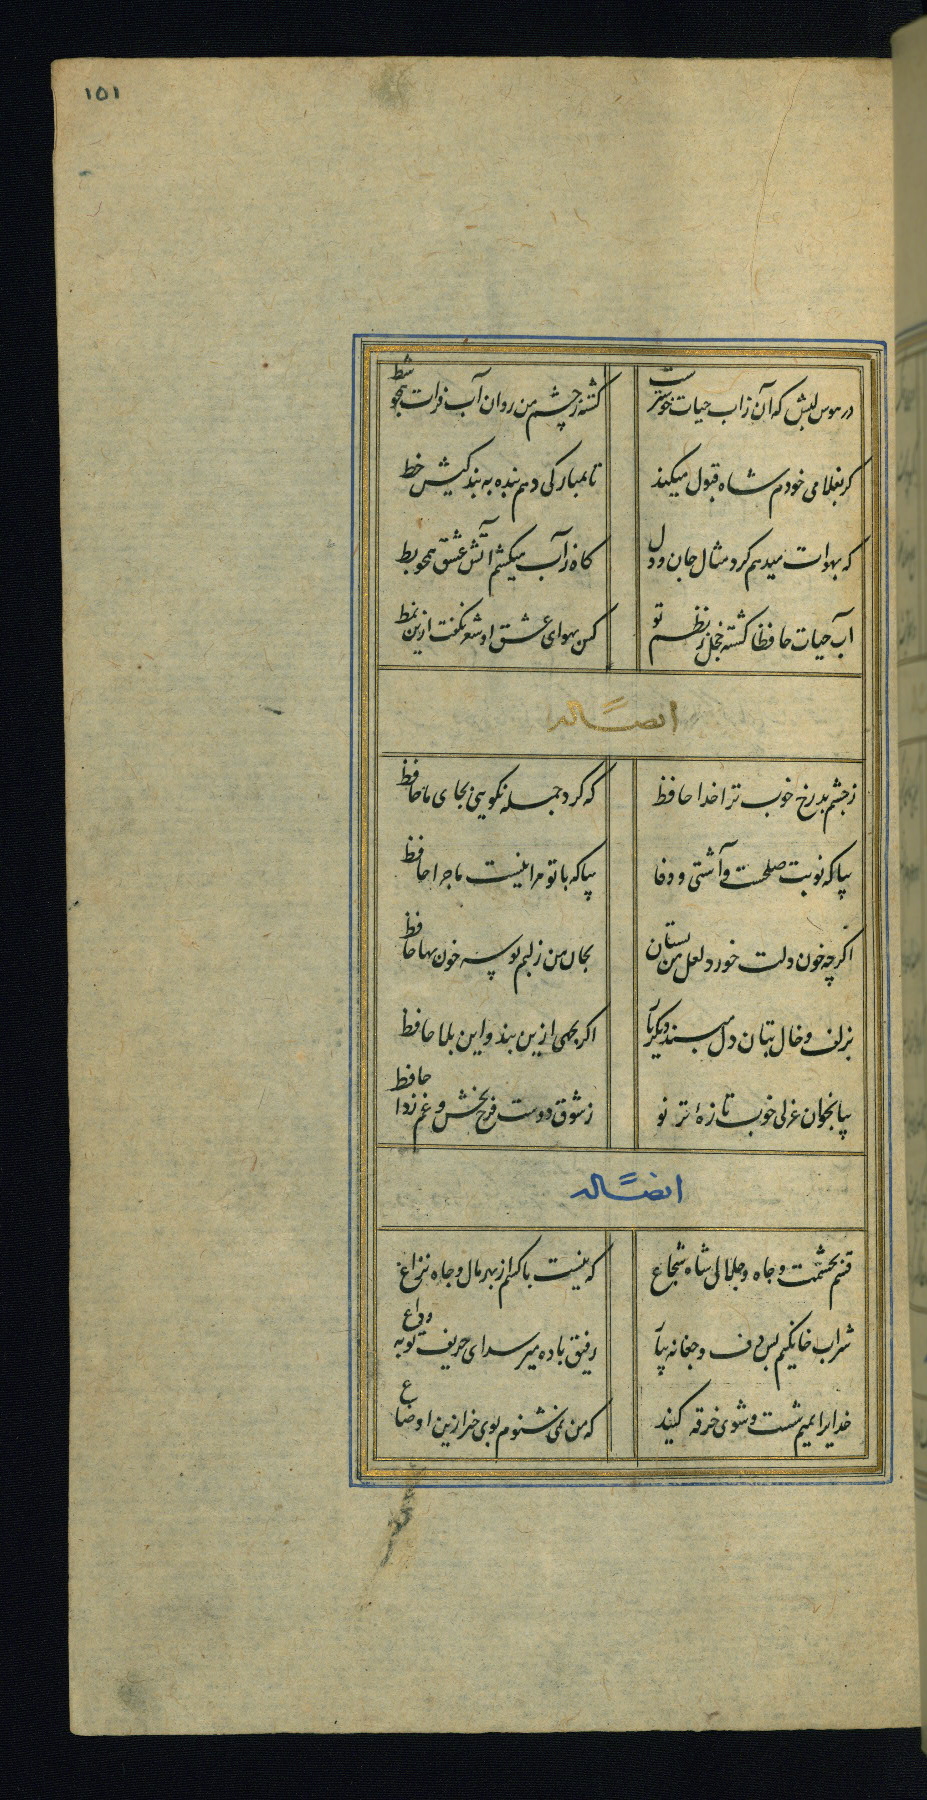 ۱۵۱
در هوس لبش که آن ز آب حیات خوشترست
گشته ز چشم من روان آب فرات همچو شط
گر بغلامی خودم شاه قبول میکند
تا بمبارکی دهم بنده به بندگیش خط
که بهوات میدهم گرد مثال جان و دل
گاه ز آب میکشم آتش عشق همچو بط
آب حیات حافظا گشته خجل ز نظم تو
کس بهوای عشق او شعر نگفت ازین نمط
ایضًا له
ز چشم بد رخ خوب ترا خدا حافظ
که کرد جمله نکویی بجای ما حافظ
بیا که نوبت صلحست و آشتی و وفا
بیا که با تو مرا نیست ماجرا حافظ
اگرچه خون دلت خورد لعل من بستان
بجان من ز لبم بوسه خون بها حافظ
بزلف و خال بتان دل مبند دیگر تا
اگر بجهی ازین بند و این بلا حافظ
بیا بخوان غزلی خوب تازهٔ تر نو
ز شوق دوست فرح بخش و غم زدا حافظ
ایضًا له
قسم بحشمت و جاه و جلال شاه شجاع
که نیست با کسم از بهر مال و جاه نزاع
شراب خانگیم بس دف و چغانه بیآ
رفیق باده میرسد ای حریف توبه وداع
خدایرا بمیم شست و شوی خرقه کنید
که من نمی شنوم بوی خیر ازین اوضاع